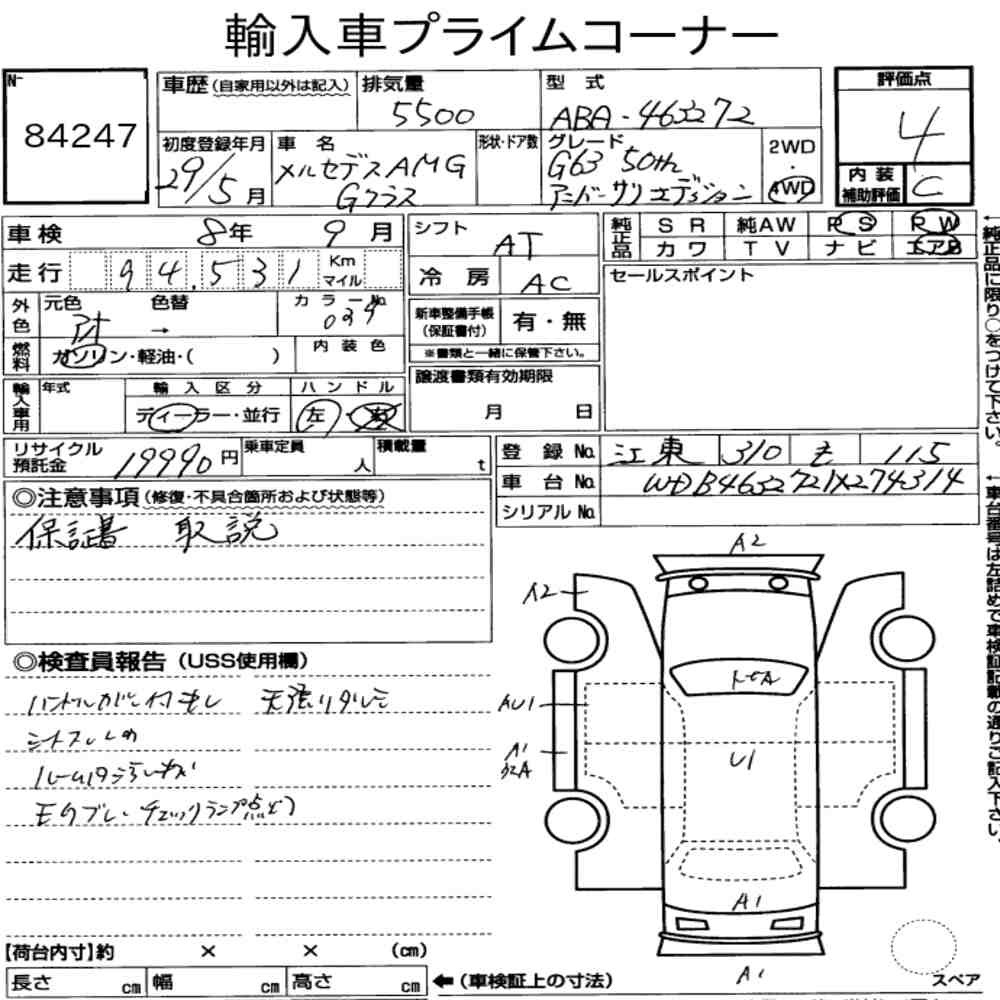 輸入車プライムコーナー
No.
84247
車歴(自家用以外は記入)
排気量
5500
型 式
ABA-463272
評価点
4
初度登録年月
29/5月
車 名
メルセデスAMG
Gクラス
形状・ドア数
グレード
G63 50th
アニバーサリーエディション
2WD
・
4WD
内 装
補助評価
C
車検 8年 9月
走行 94,531 Km
マイル
シフト
AT
冷 房
AC
純正品
SR 純AW PS PW
カワ TV ナビ エアB
外色
元色 色替
→
カラーNo.
燃料
ガソリン・軽油・( )
内装色
新車整備手帳
(保証書付)
有・無
※書類と一緒に保管下さい。
セールスポイント
輸入車用
年式
輸入区分
ディーラー・並行
ハンドル
左・右
譲渡書類有効期限
月 日
リサイクル
預託金
19990円
乗車定員
人
積載量
t
登 録 No. 江東 310 と 115
車 台 No. WDB4632721X274314
シリアル No.
◎注意事項(修復・不具合箇所および状態等)
保証書 取説
◎検査員報告(USS使用欄)
天張りダレ
シートスレしめ
チェックランプ点灯
A2
A2
AU1
A1
U1
A1
A1
【荷台内寸】約 × × (cm)
長さ cm 幅 cm 高さ cm
←(車検証上の寸法)
スペア
←純正品に限り○をつけて下さい。
←車台番号は左詰めで車検証記載の通りご記入下さい。